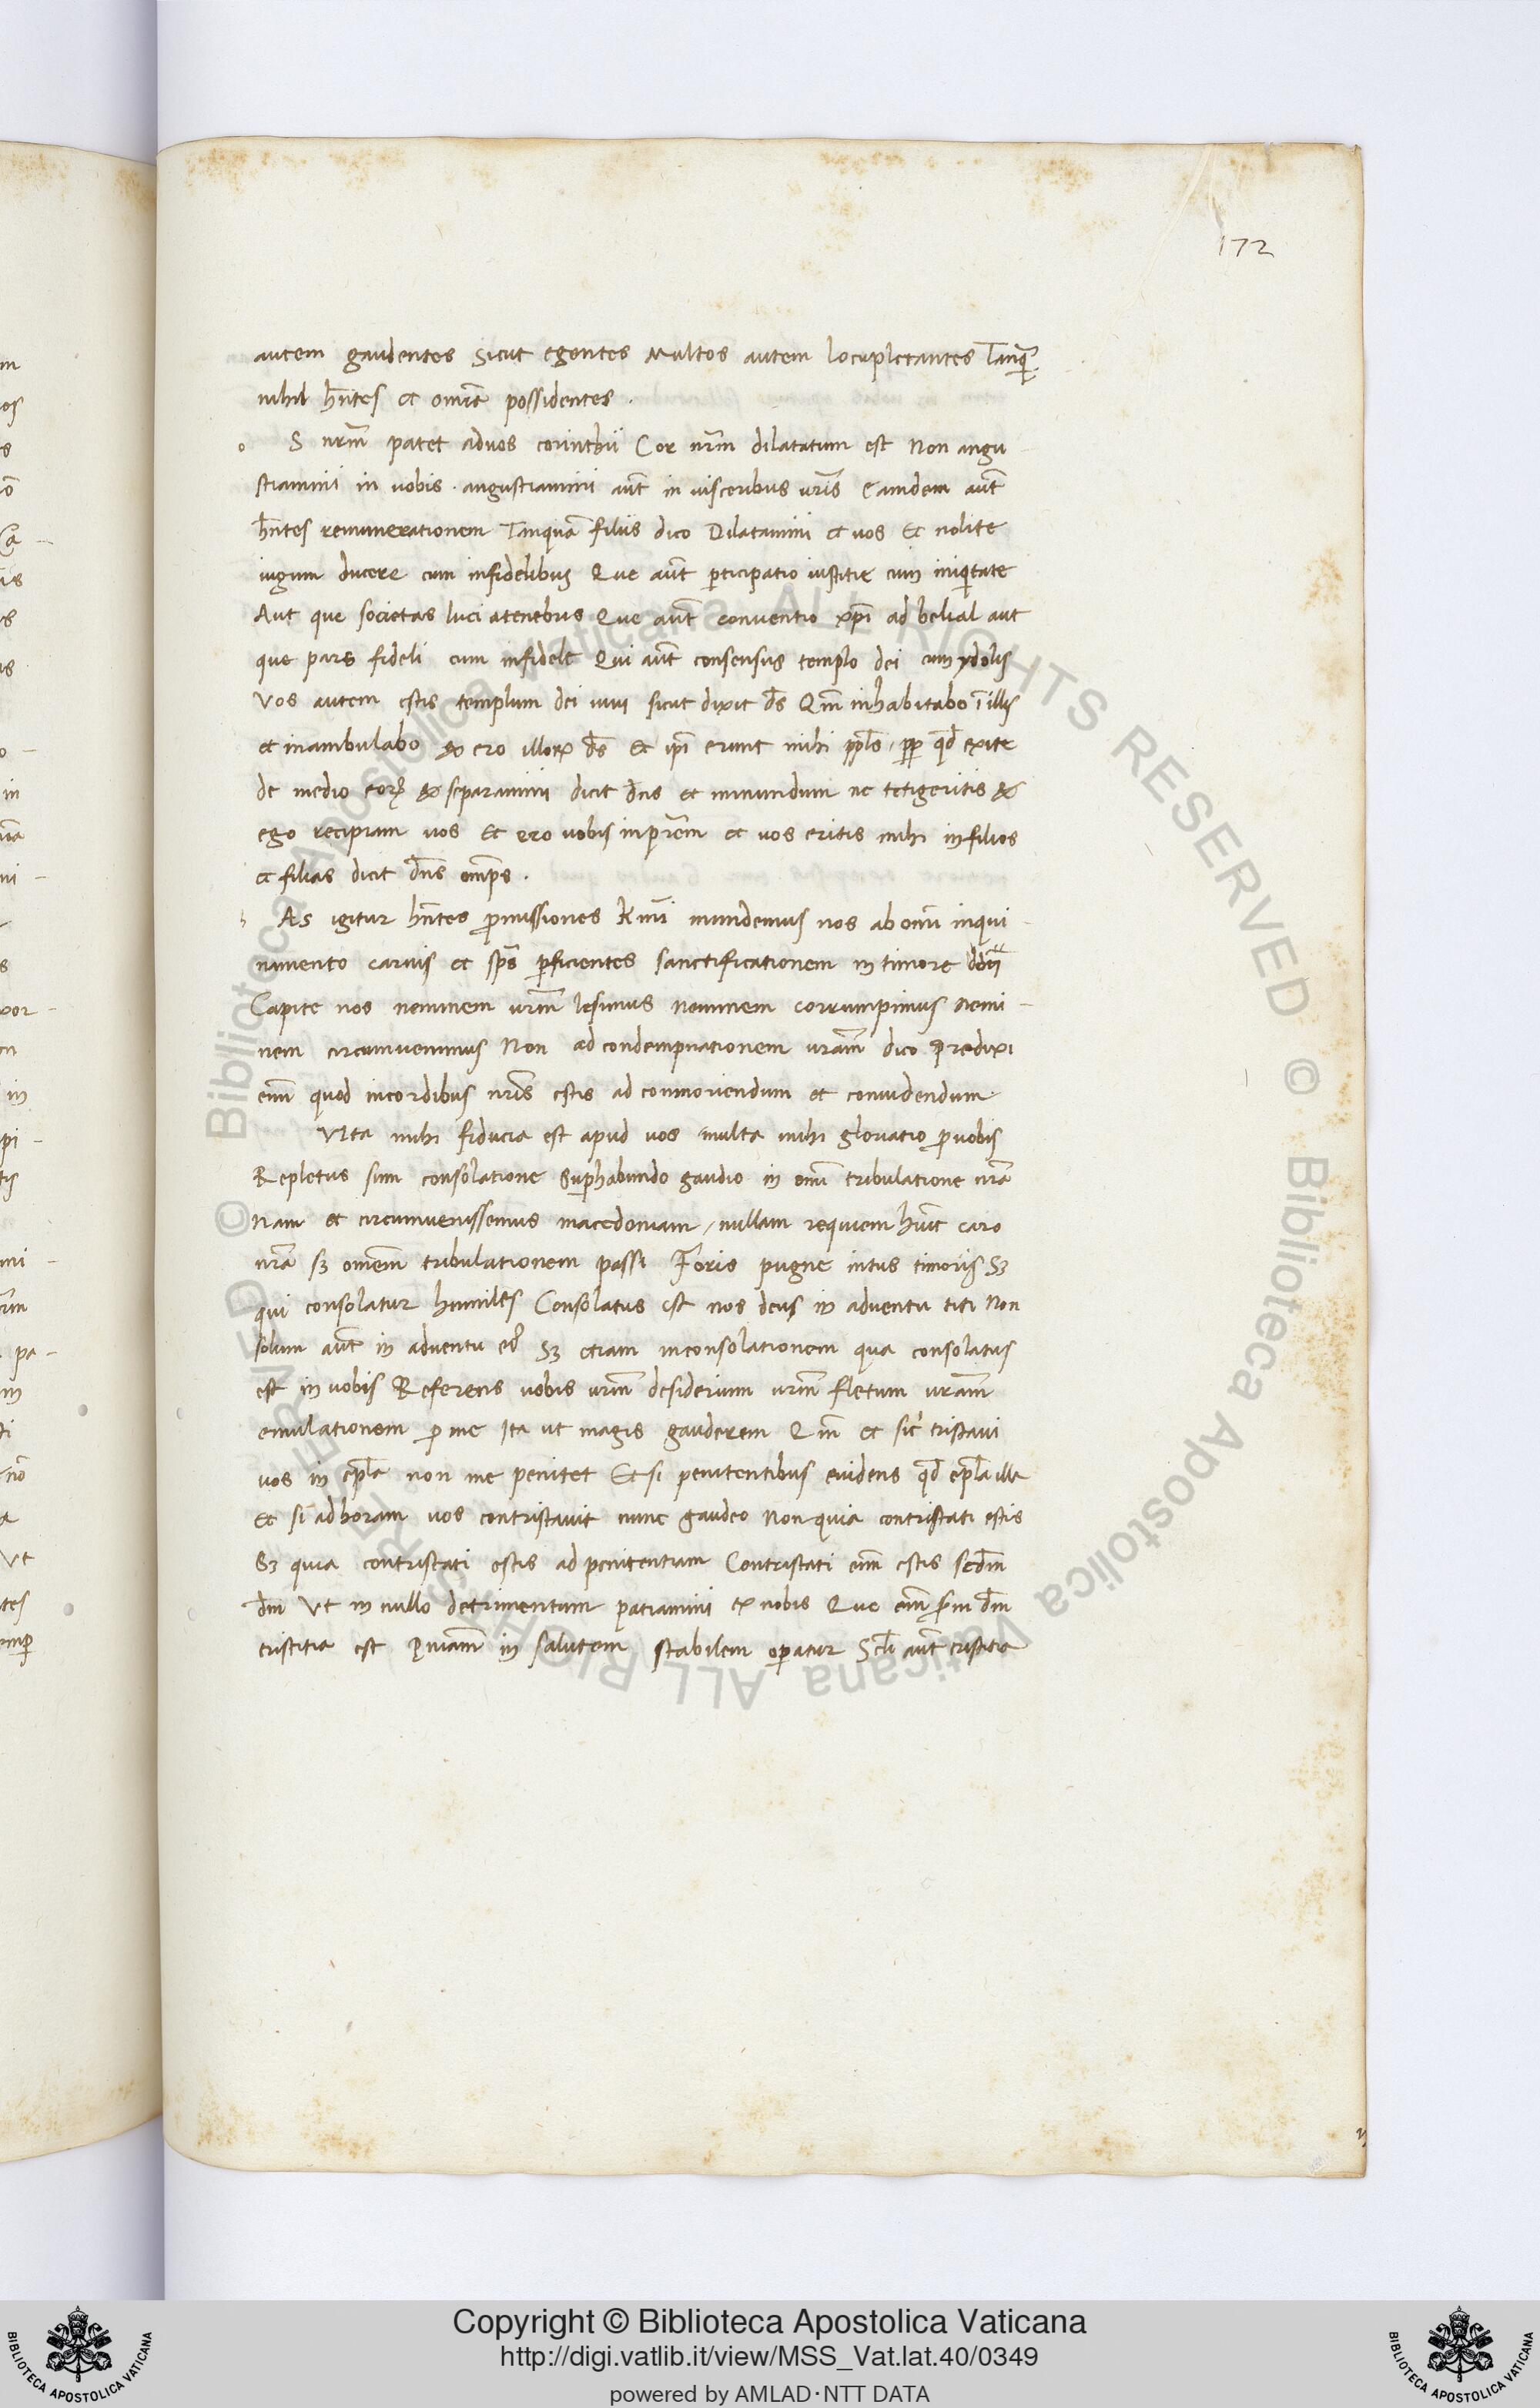 172
autem gaudentes Sicut egentes Multos autem locupletantes Tanq̃
nihil hñtes et omīa possidentes .
o S nr̃m patet aduos corinthii Cor nr̃m dilatatum est Non angu
stiamini in uobis . angustiamini aũt in uisceribus ur̃is Eamdem aũt
hñtes remunerationem Tanquã filiis dico Dilatamini et uos Et nolite
iugum ducere cum infidelibus Que aũt ꝑticipatio iustitie cum iniq̃tate
Aut que societas luci atenebus Que aũt conuentio xp̃i ad belial aut
que pars fideli cum infidele Qui aũt consensus templo dei cum ydolis
Vos autem estis templum dei uiui sicut dixit d̃s Qm̃ inhabitabo ĩ illis
et inambulabo & ero illoꝝ d̃s Et ip̃i erunt mihi pp̃ls , pp̃ qd̃ exite
de medio eoꝝ & separamini dicit dñs et inmundum ne tetigeritis &
ego recipiam uos Et ero uobis inpr̃em et uos eritis mihi infilios
et filias dicit dñs omp̃s .
h As igitur hñtes ꝓmissiones k̃mi mundemus nos ab om̃i inqui
namento carnis et sp̃s ꝑficientes sanctificationem in timore
Capite nos neminem ur̃m lesimus Neminem corrumpimus Nemi
nem circumuenimus Non ad condempnationem ur̃am dico Predixi
eñi quod incordibus nr̃is estis ad conmoriendum et conuidendum
Vlta mihi fiducia est apud uos multa mihi gloriatio ꝓuobis
Repletus sum consolatione Suꝑhabundo gaudio in om̃i tribulatione nr̃a
Nam et circumuenissemus macedoniam , nullam requiem hũit caro
nr̃a sꝫ omñem tribulationem passi Foris pugne intus timoris Sꝫ
qui consolatur humiles Consolatus est nos deus in aduentu titi Non
solum aũt in aduentu ei᷒ Sꝫ etiam inconsolationem qua consolatus
est in uobis Referens uobis ur̃m desiderium ur̃m fletum ur̃am
emulationem ꝓ me Ita ut magis gauderem Qm̃ et sic̃ tristaui
uos in ep̃la non me penitet Et si penitentibus euidens qd̃ ep̃la illa
et si adhoram uos contristauit nunc gaudeo Non quia contristati estis
Sꝫ quia contristati estis ad penitentiam Contristati eñi estis scd̃m
d̃m Vt in nullo detrimentum patiamini ex nobis Que eñi d̃m
tristitia est P̃niam̃ in salutem stabilem oꝑatur Scl̃i aũt tristitia
Copyright © Biblioteca Apostolica Vaticana
http://digi.vatlib.it/view/MSS_Vat.lat.40/0349
powered by AMLAD·NTT DATA